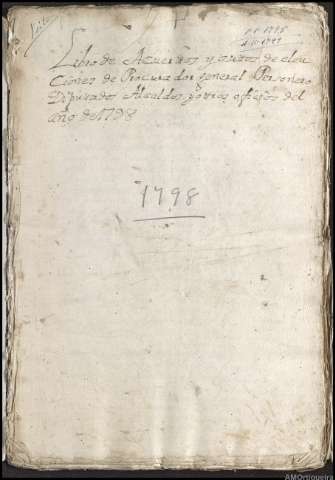 Libro de Acuerdos y autos de elec
Ciones de Procurador general Personero
Diputados Alcaldes y otros oficios del
año de 1798
1798
AMOrtigueira